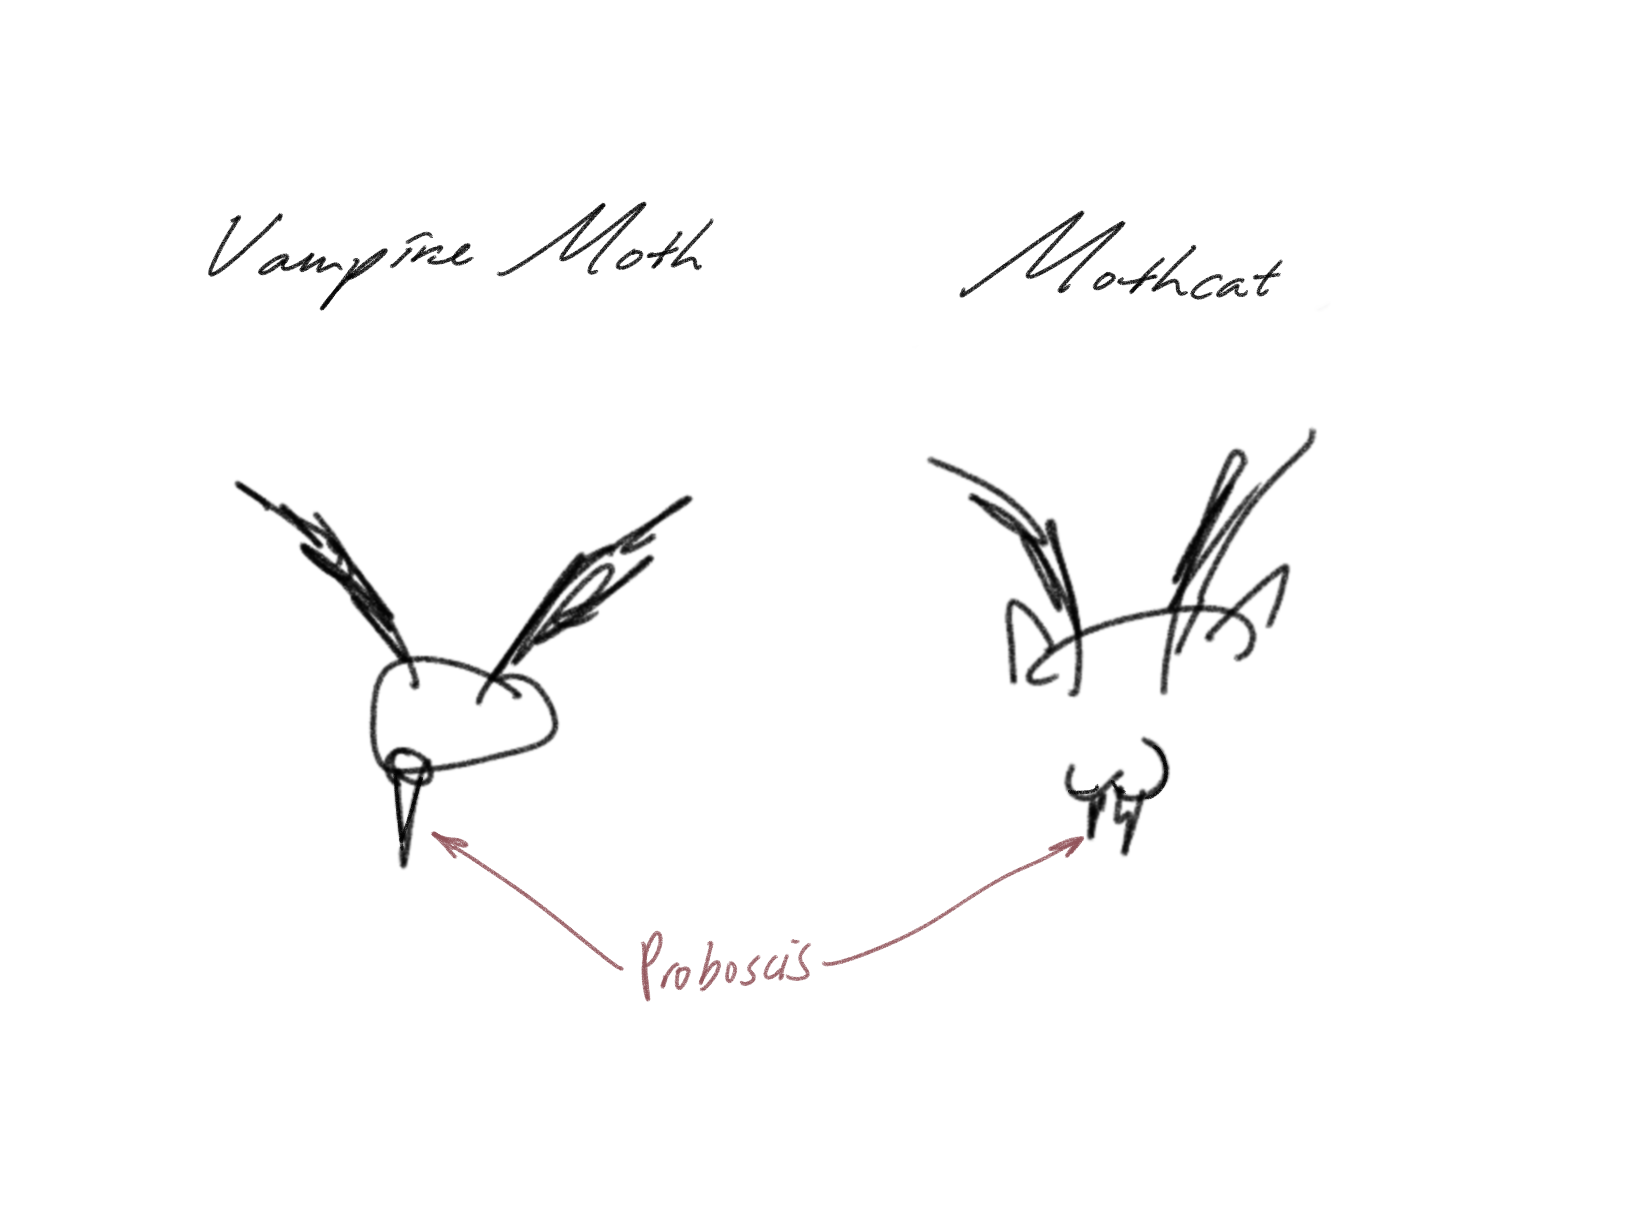 Vampire Moth
Mothcat
Proboscis